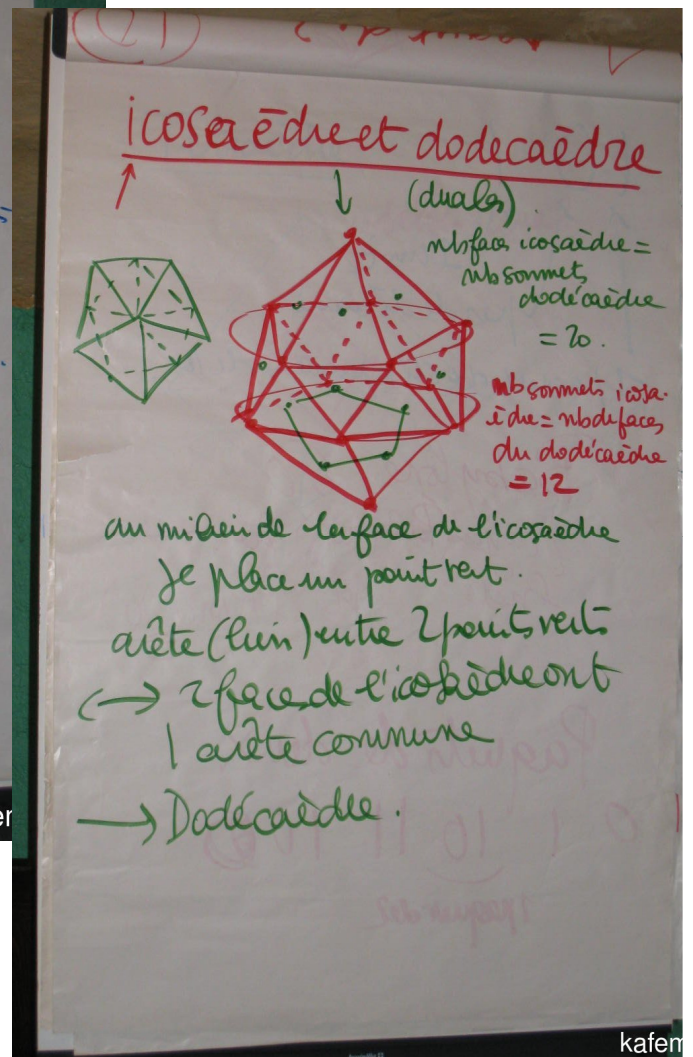 icosaèdre et dodecaèdre
(duales).
nb faces icosaèdre =
nb sommets
dodécaèdre
= 20.
nb sommets icosa-
èdre = nb de faces
du dodécaèdre
= 12
au milieu de la face de l'icosaèdre
je place un point vert.
arête (lien) entre 2 points verts
<-> 2 faces de l'icosaèdre ont
1 arête commune
-> Dodécaèdre.
kafem